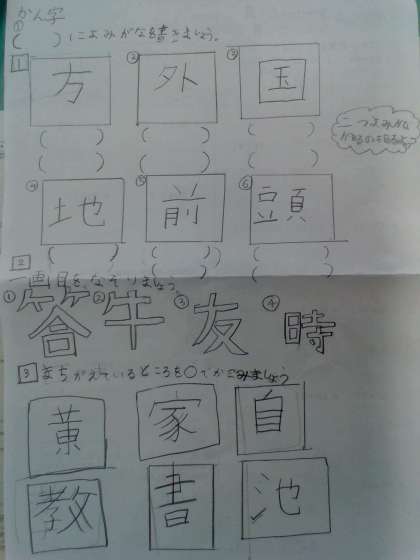 かん字
① ( )によみがなを書きましょう。
1 方 ② 外 ③ 国
( ) ( ) ( )
( ) ( ) ( )
二つよみかた
④ 地 ⑤ 前 ⑥ 頭
( ) ( ) ( )
2 ( ) ( )
一画目をなぞりましょう。
① 答 ② 牛 ③ 友 ④ 時
3 まちがえているところを○でかこみましょう
黄 家 自
教 書 池